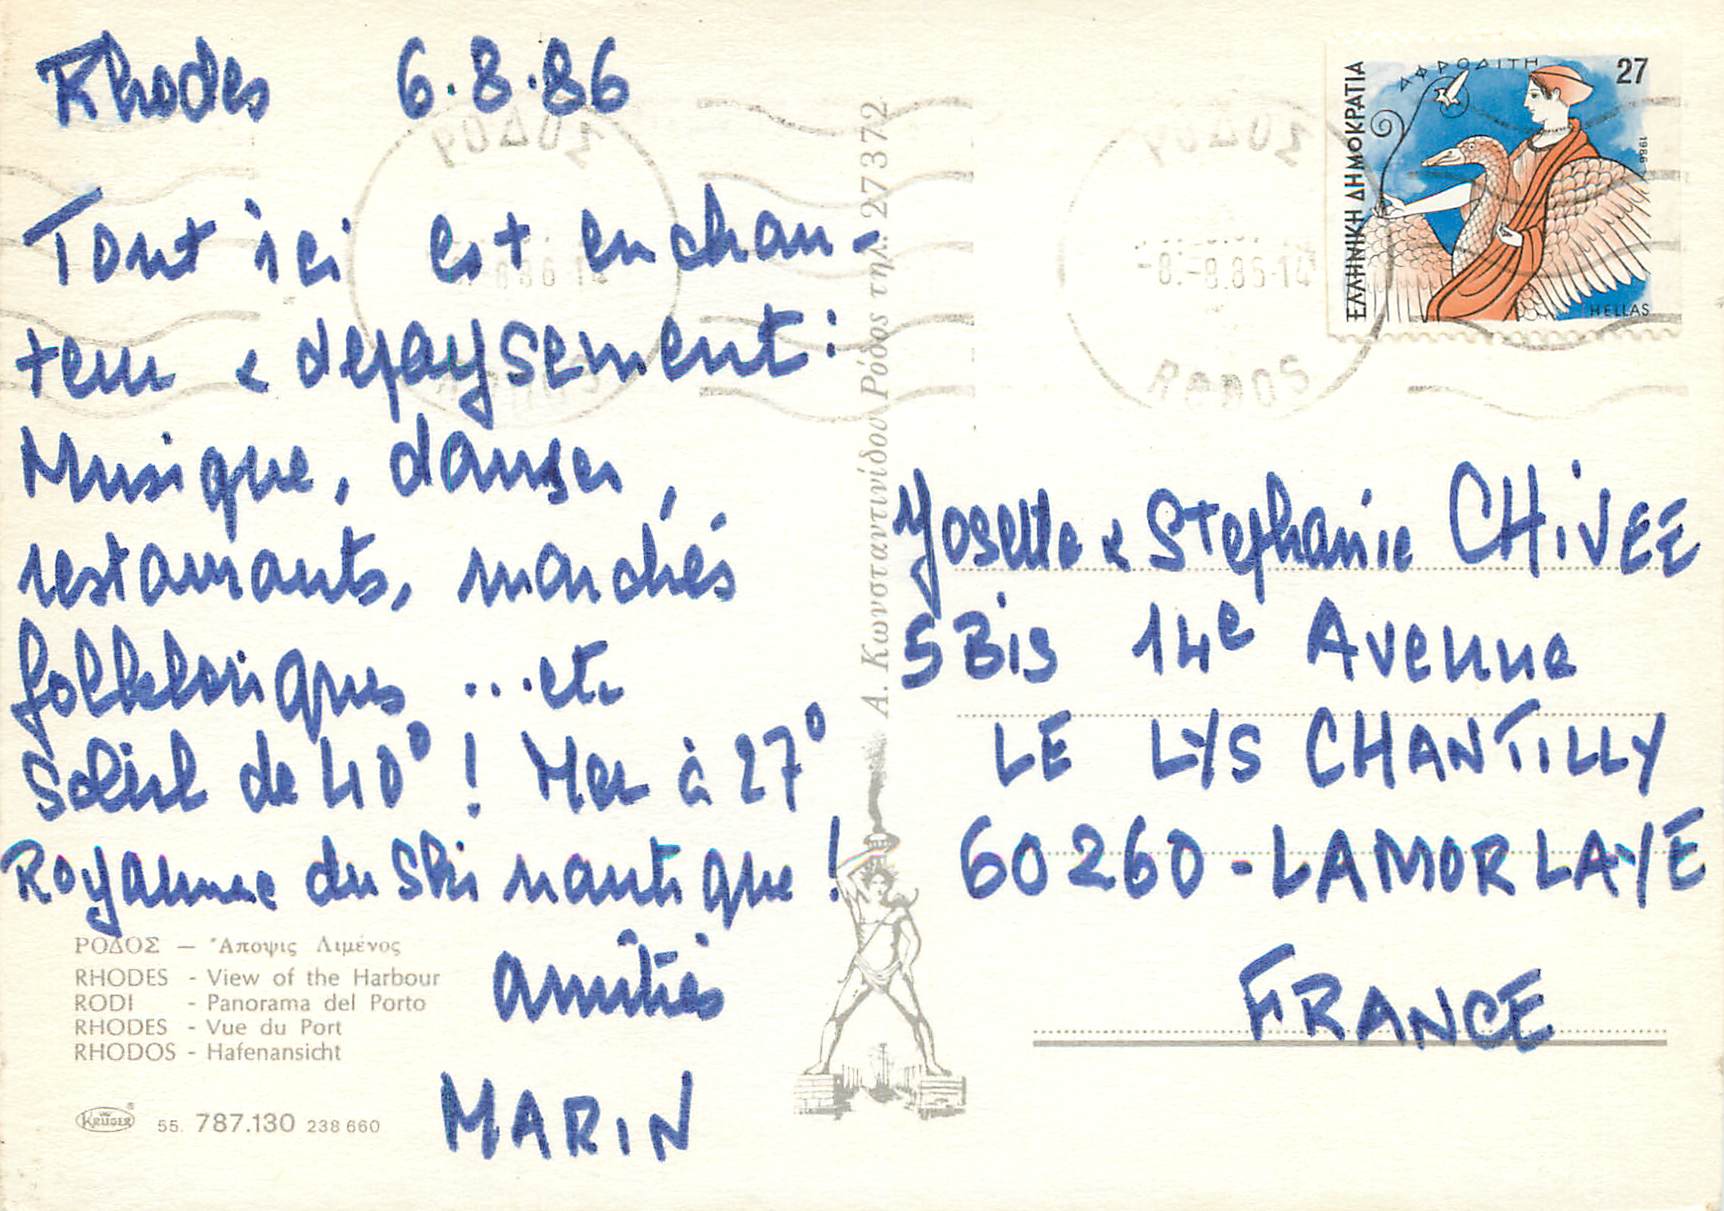 Rhodes 6.8.86
Tout ici est enchan-
teur & depaysement :
Musique, danses,
restaurants, marchés
folkloriques ...etc
Soleil de 40° ! Mer à 27°
Royaume du Ski nautique !
amitiés
MARIN
ΡΟΔΟΣ — Ἄποψις Λιμένος
RHODES - View of the Harbour
RODI - Panorama del Porto
RHODES - Vue du Port
RHODOS - Hafenansicht
KRÜGER
55. 787.130 238 660
Α. Κωνσταντινίδου Ρόδος τηλ. 27372
ΡΟΔΟΥ
8.86 14
ΡΟΔΟΥ
-8.-8.86-14
RODOS
ΕΛΛΗΝΙΚΗ ΔΗΜΟΚΡΑΤΙΑ
ΑΦΡΟΔΙΤΗ
27
1986
HELLAS
Yoselle & Stephanie CHiVEE
5 Bis 14e Avenue
LE LYS CHANTILLY
60260-LAMORLAYE
FRANCE